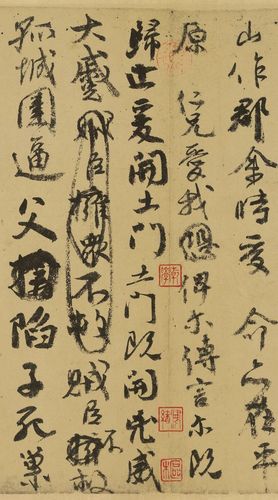 山作郡余時受命亦在平
原仁兄愛我俾爾傳言爾既
歸止爰開土門土門既開凶威
大蹙賊臣擁眾不救賊臣不救
孤城圍逼父陷子死巢